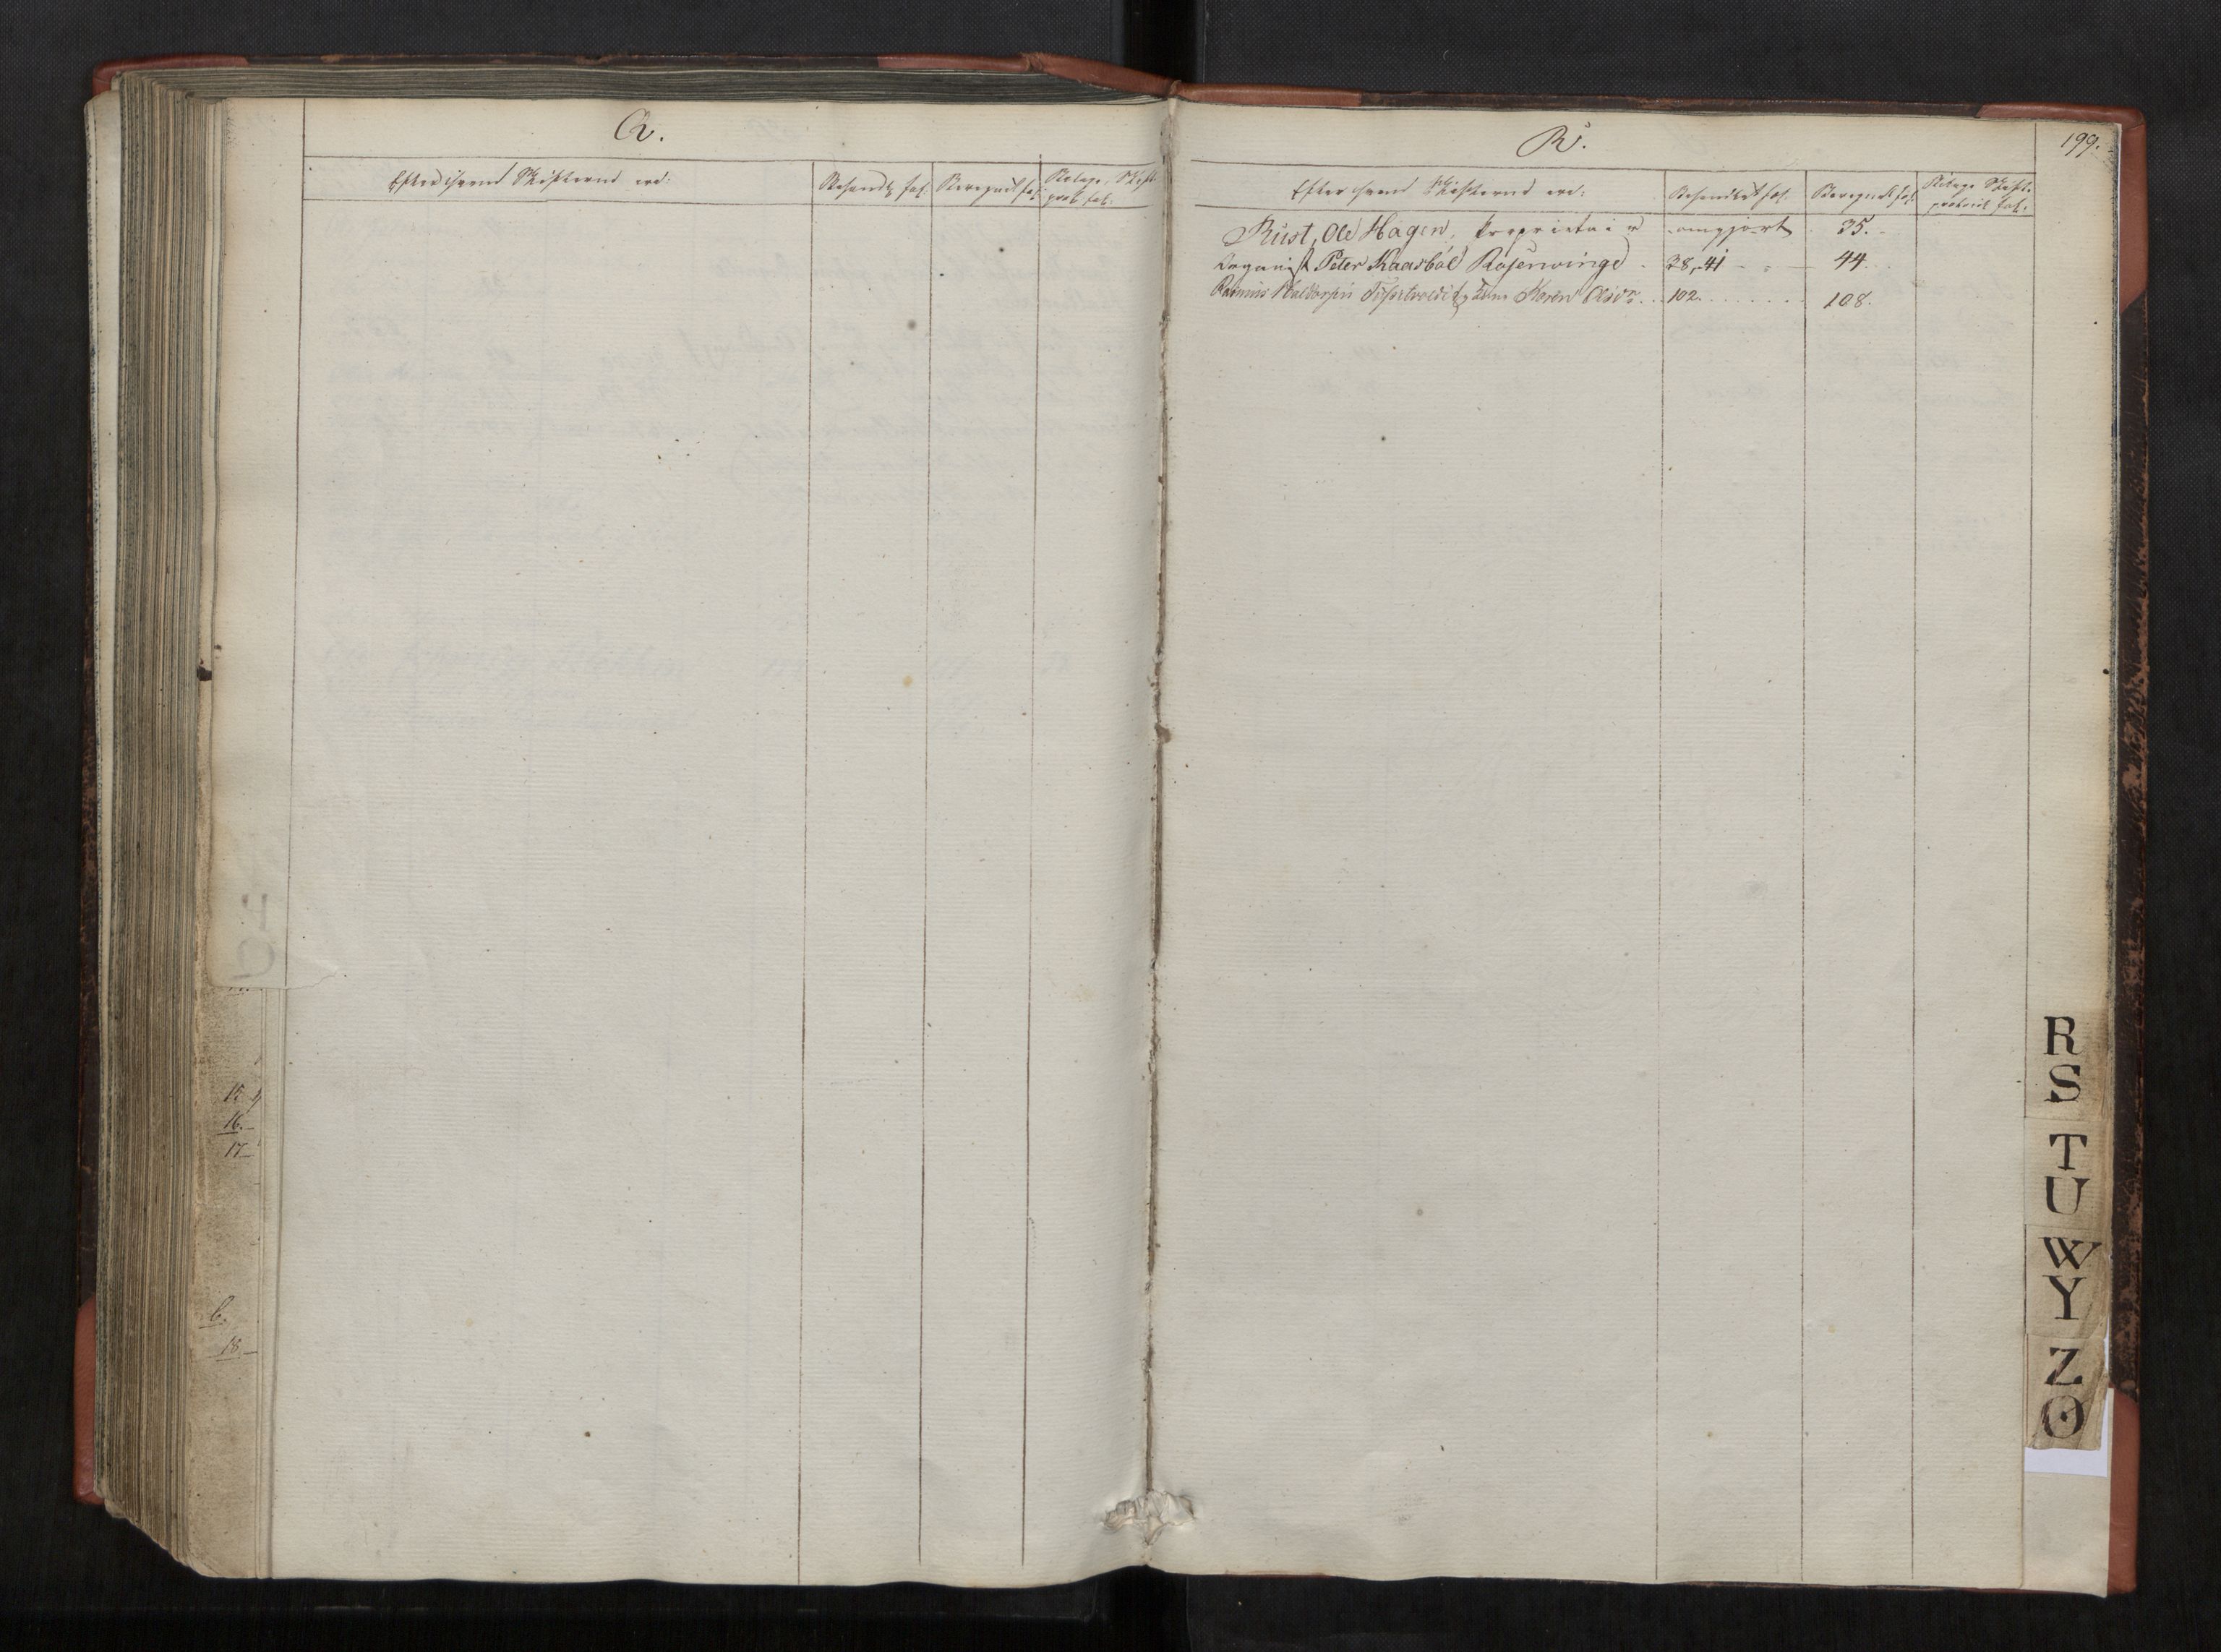 Q.
Efter hvem Skifterne ere:
Behandl. fol.
Beregnet fol.
Bilage. Skift.
prot. fol.
R.
199.
Efter hvem Skifterne ere:
Behandlet fol.
Beregnet fol.
Bilage Skift.
protocol fol.
Rust, Ole Hagen, Proprietair omgjort 35.
Organist Peter Kaasböl Rosenvinge 38, 41 44.
Rasmus Karen Olsdr. 102. 108.
R
S
T
U
W
Y
Z
Ø
15
16.
17
6.
18